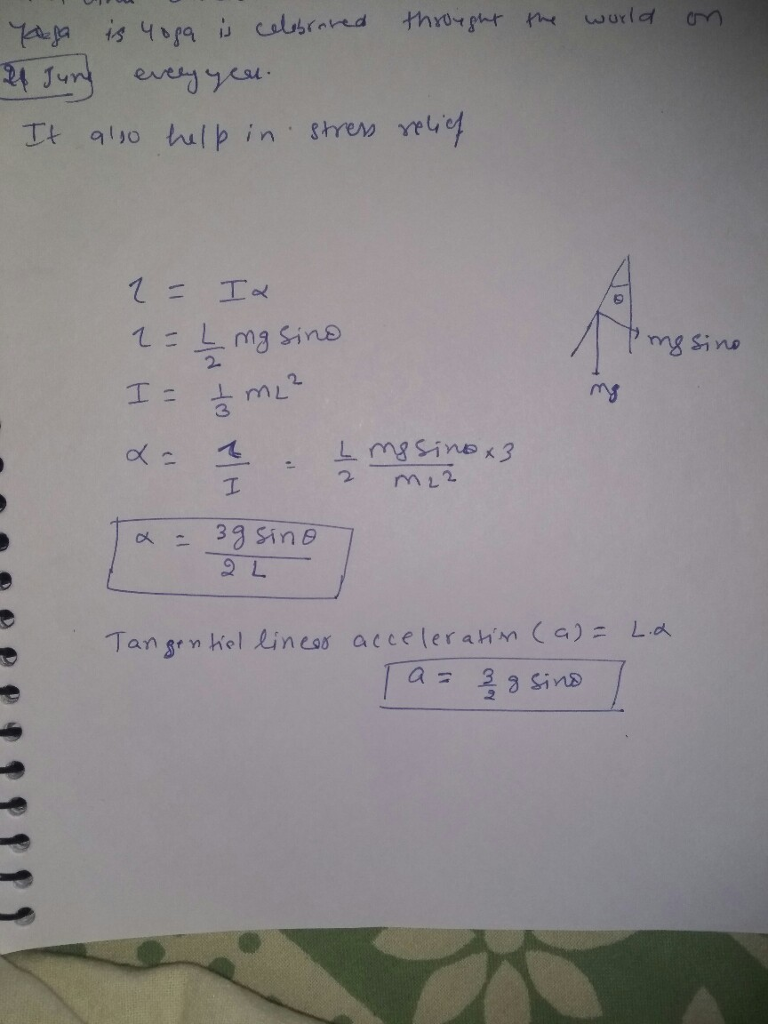 is yoga is celebrated throught the world on
21 June every year.
It also help in stress relief
τ = Iα
τ = L/2 mg sinθ
I = 1/3 mL²
α = τ/I = L/2 mg sinθ × 3 / mL²
α = 3g sinθ / 2L
Tangential linear acceleration (a) = L.α
a = 3/2 g sinθ
θ
mg sinθ
mg